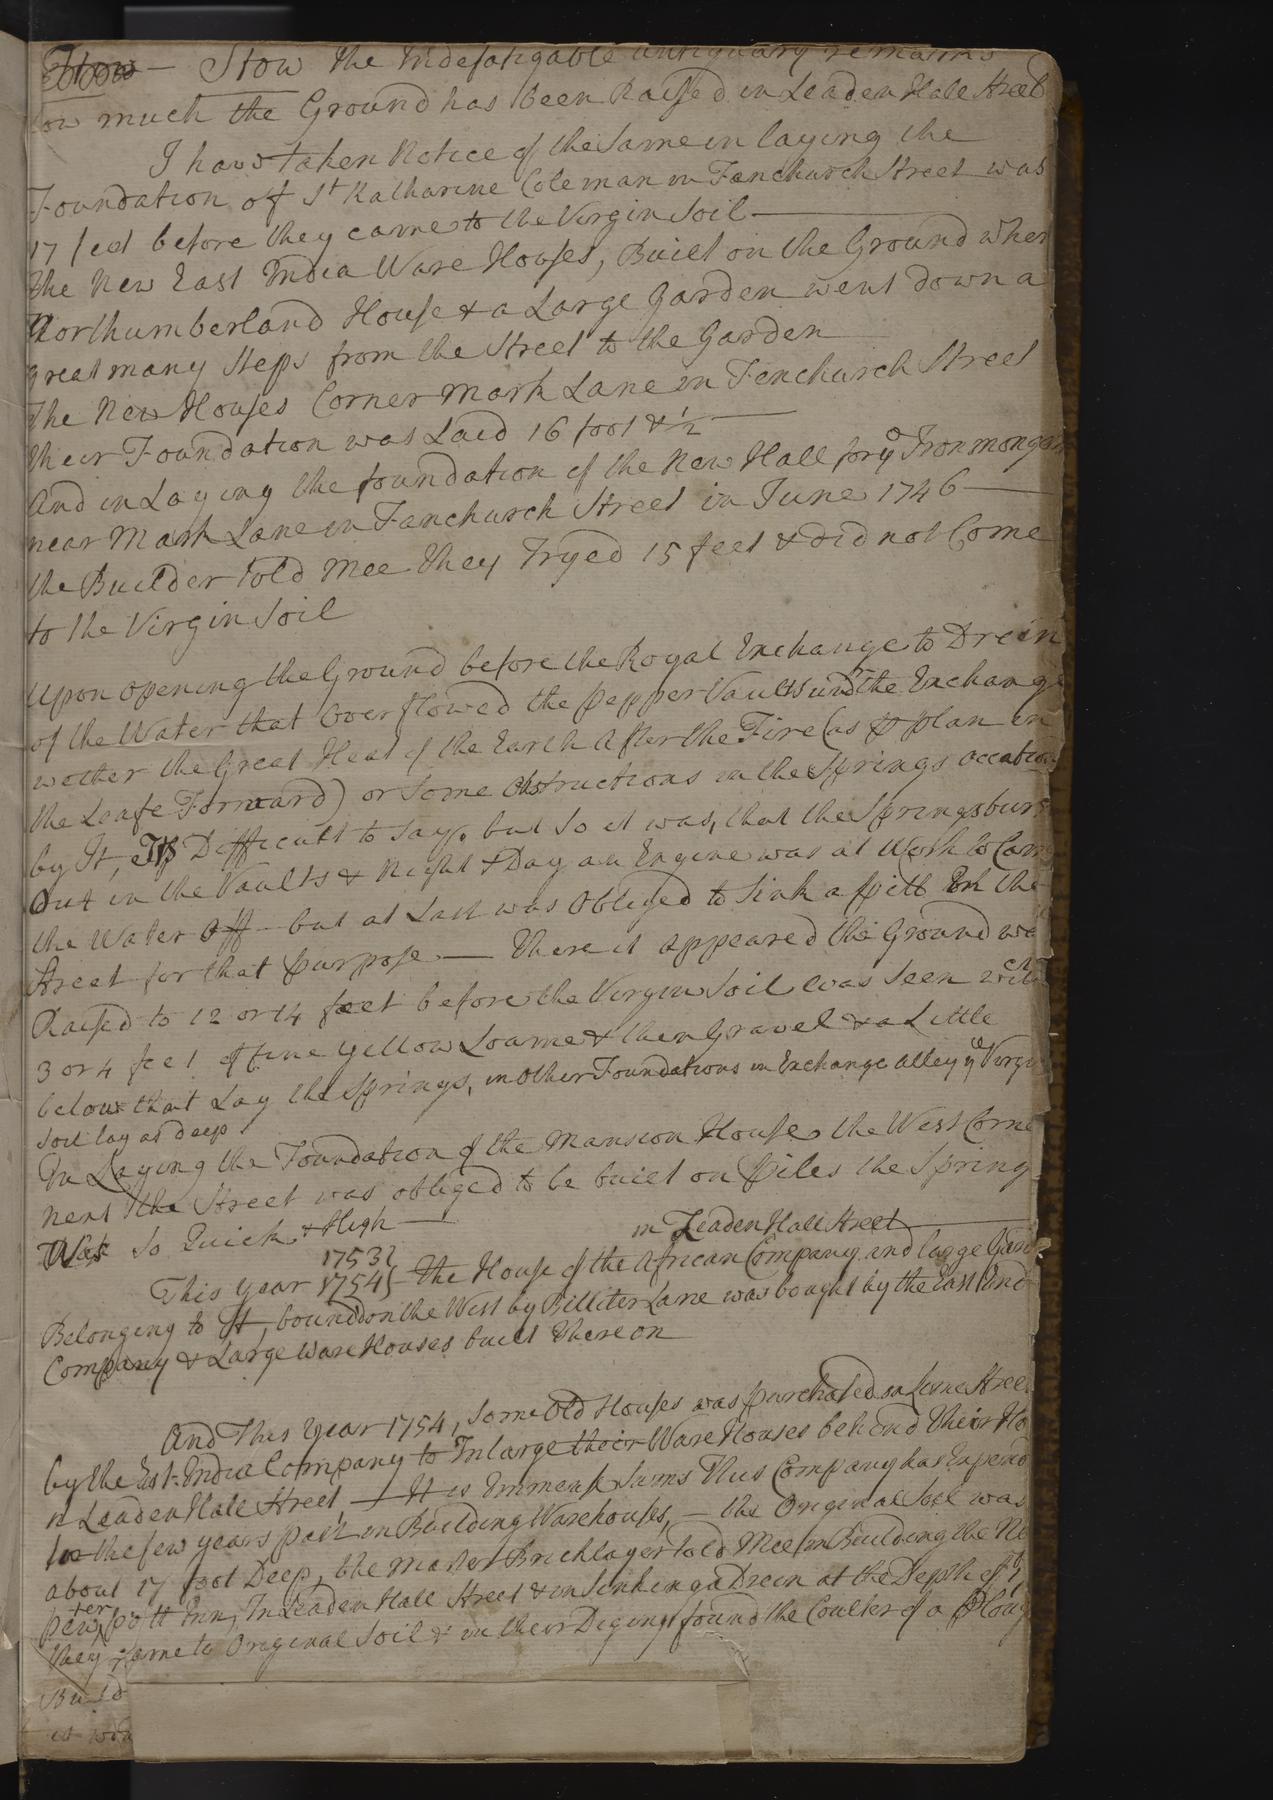 Stow — Stow the Indefatigable Antiquary remarks
how much the Ground has been Raised in Leaden Hall Street
I have taken Notice of the Same in laying the
Foundation of St Katharine Coleman in Fanchurch Street was
17 feet before they came to the Virgin Soil —
The New East India Ware Houses, Built on the Ground wher
Northumberland House & a Large Garden went down a
great many Steps from the Street to the Garden
The New Houses Corner Mark Lane in Fenchurch Street
their Foundation was Laid 16 foot & ½ —
And in Laying the foundation of the New Hall for ye Ironmongers
near Mark Lane in Fanchurch Street in June 1746 —
the Builder told Mee they Tryed 15 feet & did not Come
to the Virgin Soil
Upon opening the Ground before the Royal Exchange to Drein
of the Water that Overflowed the Pepper Vaults undr the Exchange
wether the Great Heat of the Earth After the Fire (as p plan in
the Leafe Forward) or Some Obstructions in the Springs occation
by It, Tis Difficult to Say, but So it was, that the Springs burs
Out in the Vaults & Night & Day an Engine was at Work to Carry
the Water Off — but at Last was Obliged to Sink a pitt in the
Street for that purpose — There it appeared the Ground wa
Raised to 12 or 14 feet before the Virgin Soil was Seen wch
3 or 4 feet of fine yellow Loame & then Gravel & a Little
below that Lay the Springs, in Other Foundations in Exchange Alley ye Virgin
Soil lay as deep
In Laying the Foundation of the Mansion House the West Corne
next the Street was obliged to be built on Piles the Spring
Was So Quick & High —
in Leaden Hall Street
This Year 1753 1754 — The House of the African Company and large Gard
Belonging to It, bound on the West by Billiter Lane was bought by the East Ind
Company & Large Ware Houses built there on
And This Year 1754, Some Old Houses was purchased in Lime Stree
by the East India Company to Inlarge their Ware Houses behind their Ho
n Leaden Hall Street — It is Immense Sums This Company has Expend
the few years past in Building Warehouses, — the Original Soil was
about 17 foot Deep, the Master Bricklayer told Mee in Building the Ne
Pewter Pott Inn, In Leaden Hall Street & in Sinking a Drein at the Depth of
they came to Original Soil & in their Digings found the Coulter of a Ploug